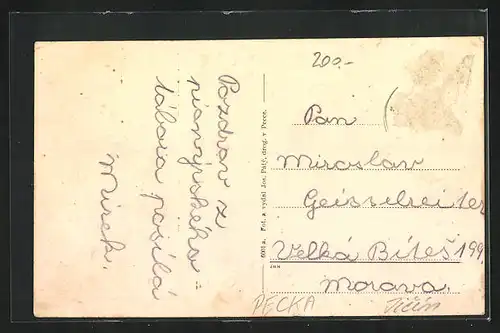 200.-
Pozdrav z
pionýrského
tábora posílá
Mirek.
Fot. a vydal Jos. Patý, drog. v Pecce.
Pan
Miroslav
Geisselreiter
Velká Bíteš 199
Morava.
PECKA Jičín